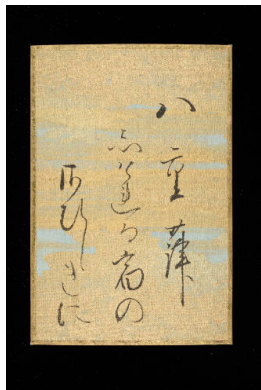 八重葎
しけれる宿の
さひしきに